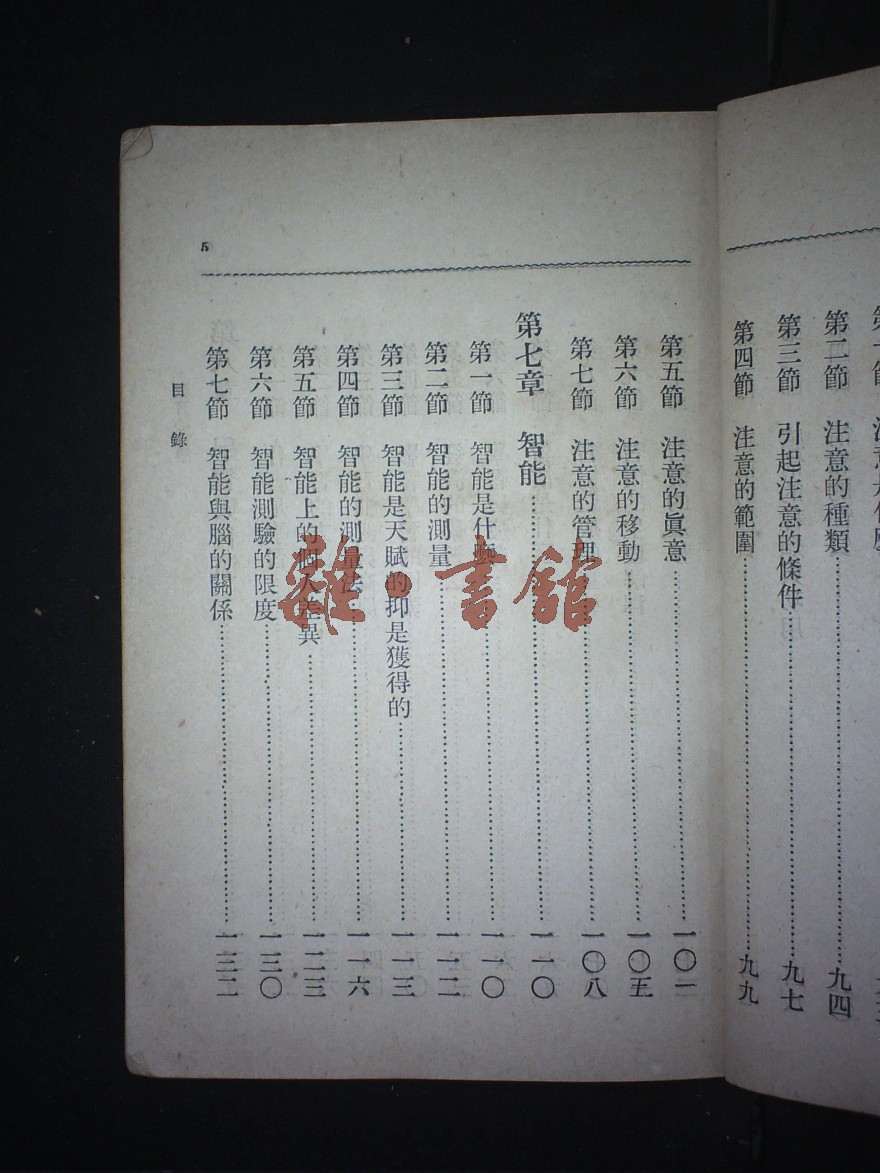 第二節　注意的種類……九四
第三節　引起注意的條件……九七
第四節　注意的範圍……九九
5
第五節　注意的眞意……一〇一
第六節　注意的移動……一〇五
第七節　注意的管理……一〇八
第七章　智能……一一〇
第一節　智能是什麼……一一〇
第二節　智能的測量……一一二
第三節　智能是天賦的抑是獲得的……一一三
第四節　智能的測量法……一一六
第五節　智能上的個人差異……一二三
第六節　智能測驗的限度……一三〇
第七節　智能與腦的關係……一三二
目錄
雜·書館